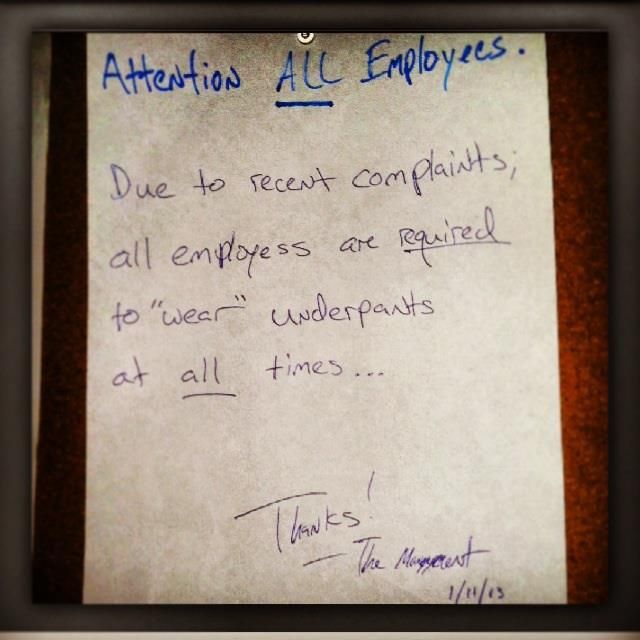 Attention ALL Employees.
Due to recent complaints;
all employess are required
to "wear" underpants
at all times...
Thanks!
- The Management
1/11/13